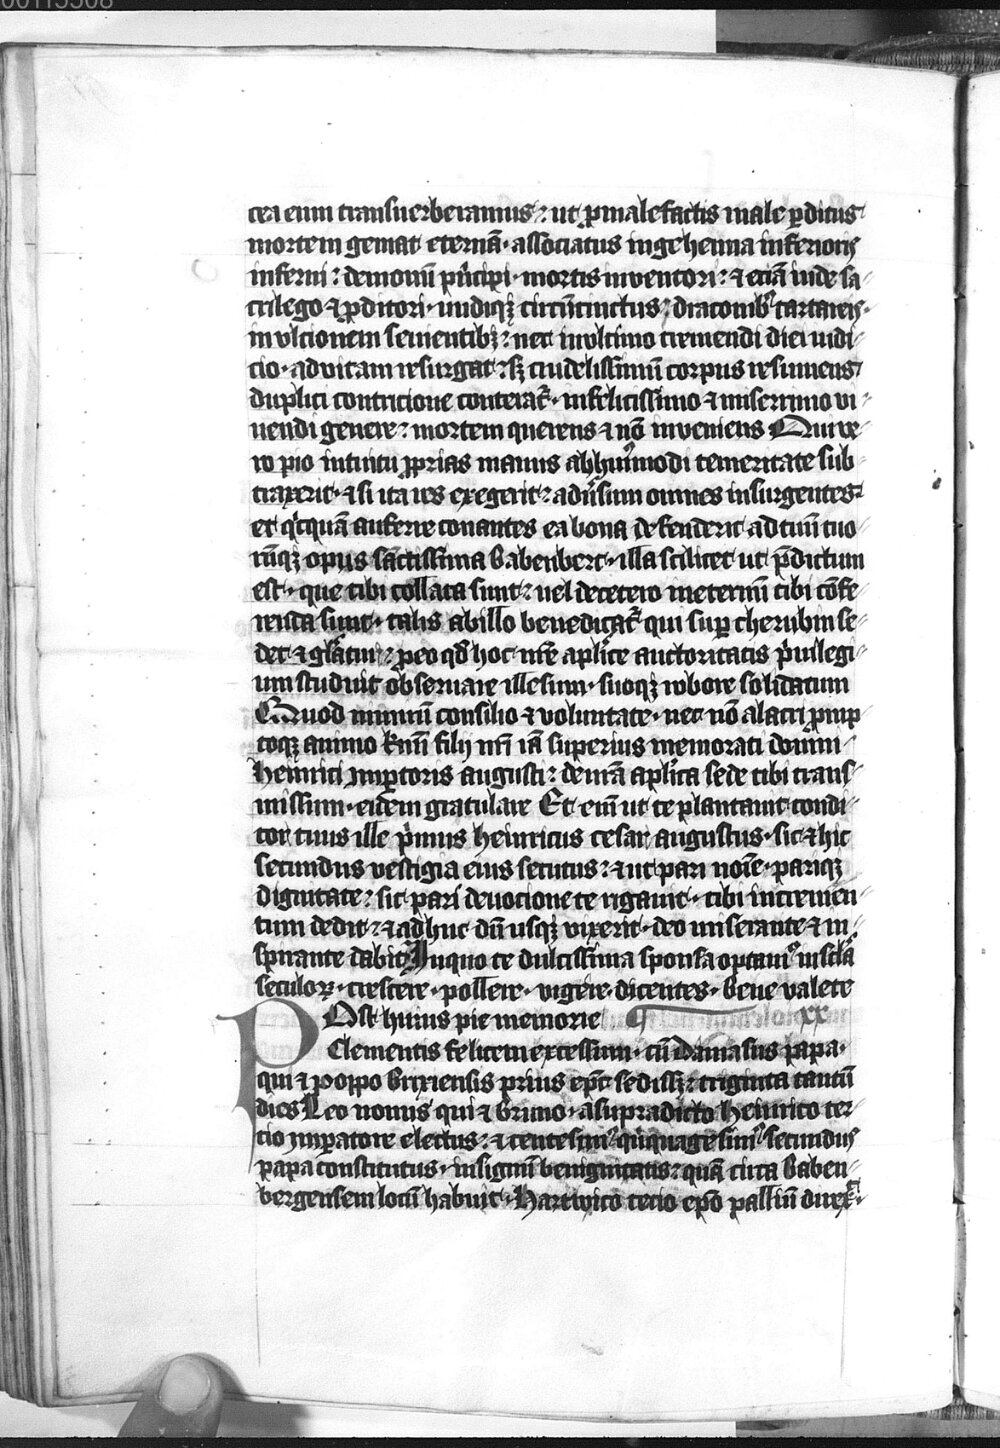 00115508
cea eum transuerberamus : ut ꝑ malefactis male ꝑditus
mortem gemat eternā · associatus in gehenna inferioris
inferni : demonum pͥncipi · mortis inuentori : ⁊ eciā iude sa⸗
crilego ⁊ ꝓditori · undiqꝫ circūcinctus : draconibꝰ tartareis ·
in ulcionem seuientibꝫ : nec in ultimo tremendi diei iudi⸗
cio · ad vitam resurgat : sꝫ crudelissimū corpus resumens
duplici contricione conterat᷑ · infelicissimo ⁊ miserrimo vi⸗
uendi genere : mortem querens ⁊ nō inueniens Qui ve⸗
ro pio intuitu ꝓprias manus ab huiꝰmodi temeritate sub⸗
traxerit · ⁊ si ita res exegerit : aduͥsum omnes insurgentes
et qͥcquā auferre conantes ea bona defenderit ad tuū tuo⸗
rūqꝫ opus sāctissima babenberc · illa scilicet ut p̄dictum
est · que tibi collata sunt : uel de cetero in eternū tibi cōfe⸗
renda sunt · talis ab illo benedicat᷑ qui suꝑ cherubin se⸗
det ⁊ gl̄atur : ꝓ eo qd̄ hoc nr̄e apl̄ice auctoritatis pͥuilegi⸗
um studuit obseruare illesum · suoqꝫ robore solidatum
Quod nimirū consilio ⁊ voluntate · nec nō alacri ꝓmp⸗
toqꝫ animo kͬmi filij nr̄i iā superius memorati domni
heinrici imꝑtoris augusti : de nr̄a apl̄ica sede tibi trans⸗
missum · eidem gratulare Et eni͞ ut te plantauit condi⸗
tor tuus ille pͥmus heinricus cesar augustus · sic ⁊ hic
secundus vestigia eius secutus : ⁊ ut pari noīe · pariqꝫ
dignitate : sic pari deuocione te rigauit · tibi incremen⸗
tum dedit : ⁊ adhuc dū usqꝫ vixerit · deo miserante ⁊ in⸗
spirante dabit In quo te dulcissima sponsa optamꝰ in sc̄la
seculoꝝ · crescere · pollere · vigere · dicentes · bene valete
POst huius pie memorie xx
Clementis felicem excessum · cū Damasus papa ·
qui ⁊ poppo brixiensis prius ep̄c sedissꝫ : triginta tantū
dies Leo nonus qui ⁊ bruno · a supradicto heinrico ter⸗
cio imperatore electus : ⁊ centesimꝰ quinquagesimꝰ secundus
papa constitutus · insignū benignitatis : quā circa baben⸗
bergensem locū habuit · Hartwico tercio ep̄o palliū direx̄ ·